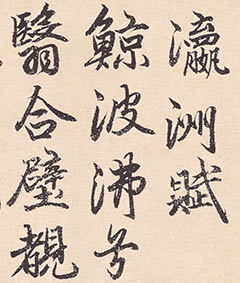 瀛洲賦
鯨波沸兮
翳合璧覩